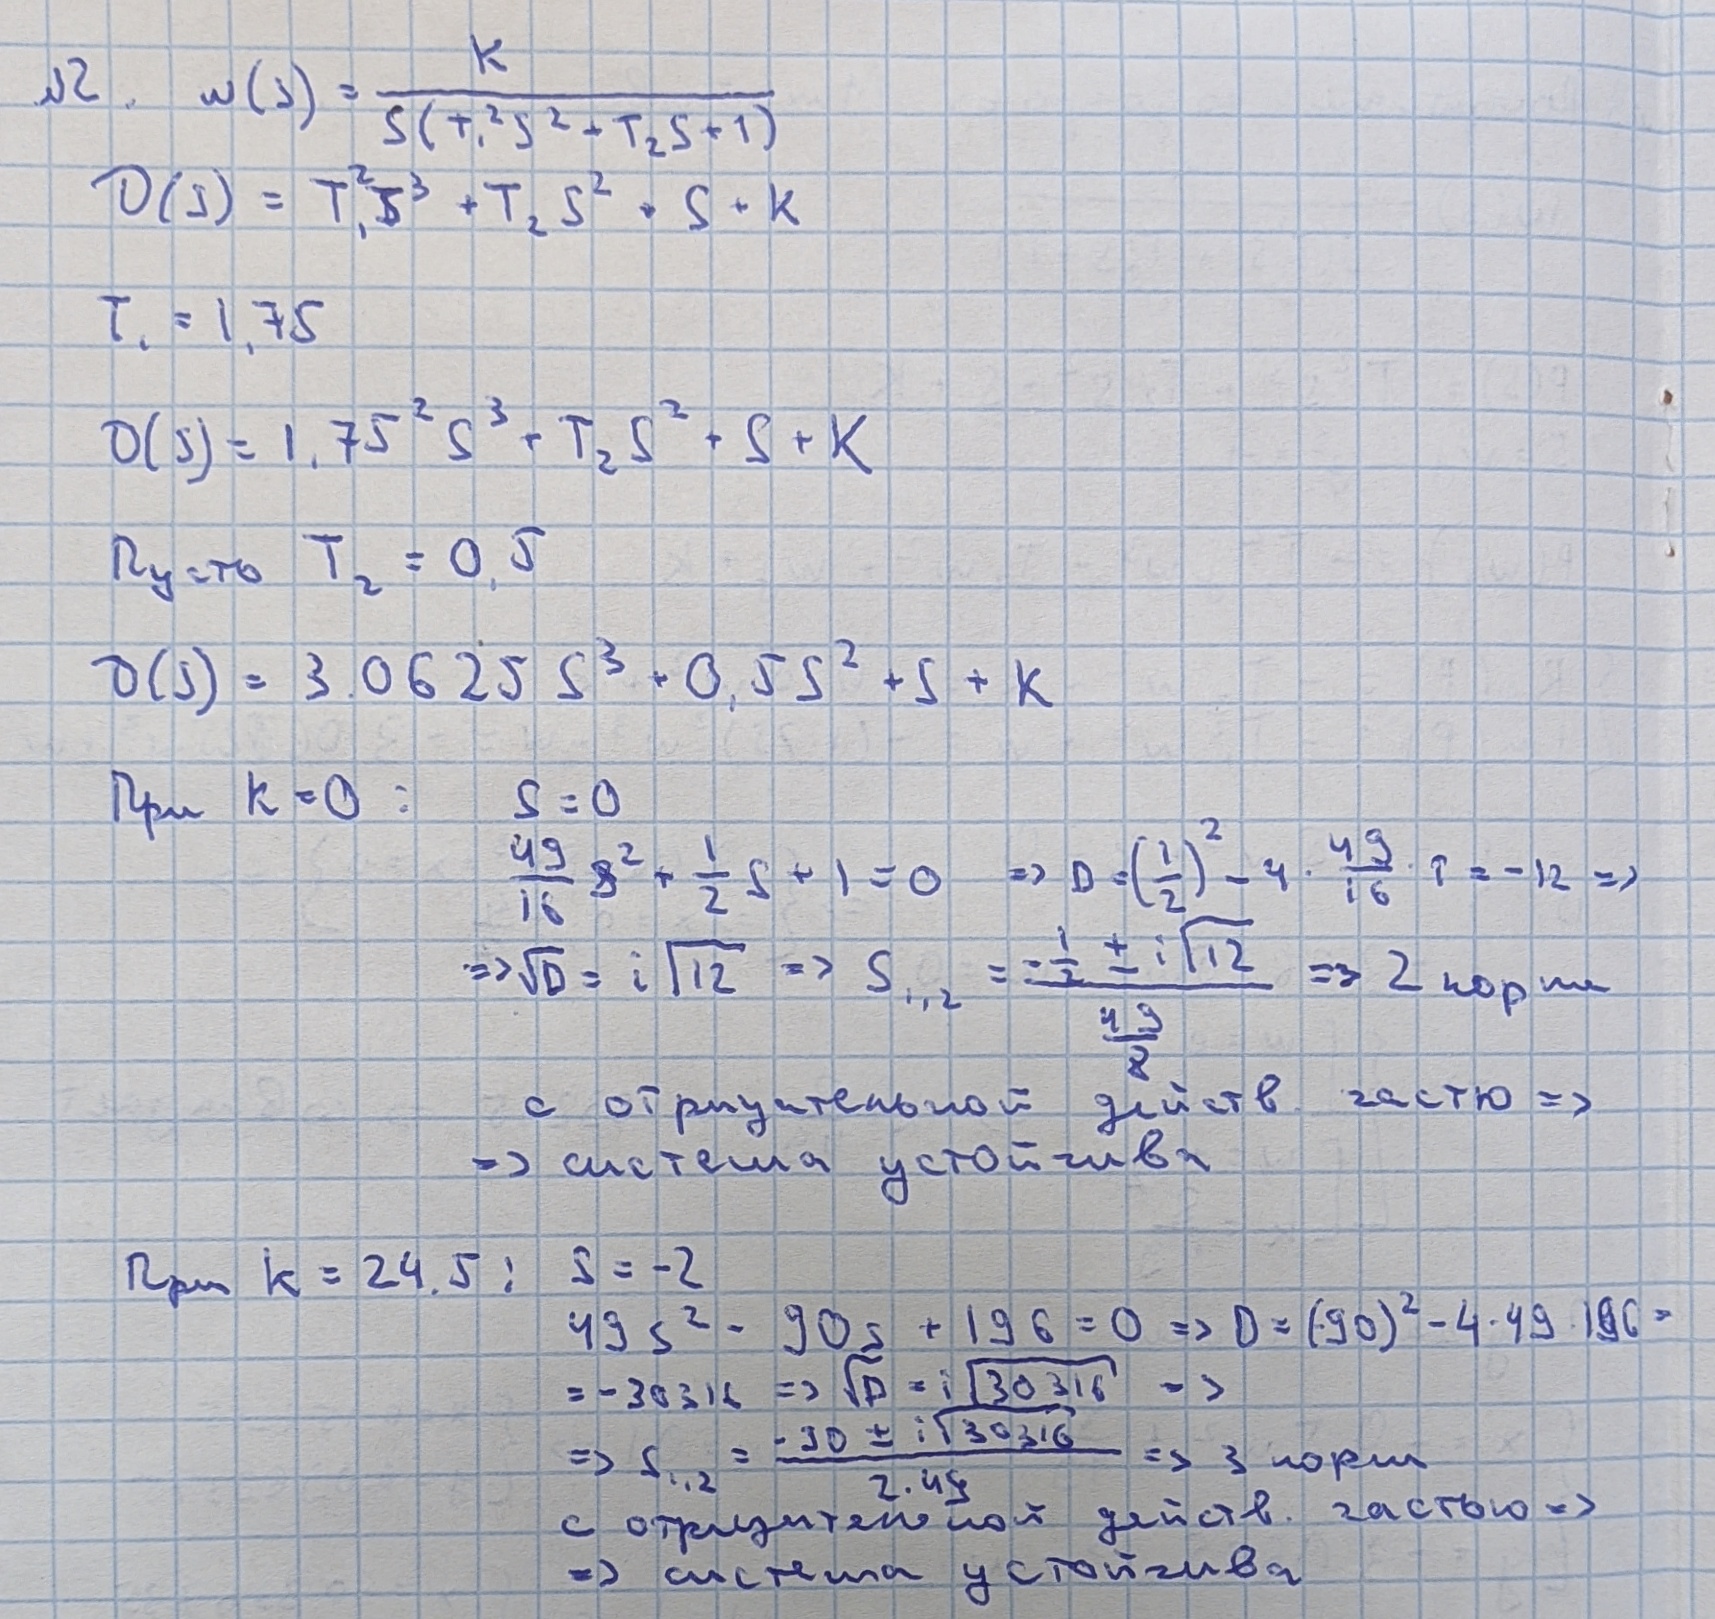 №2. W(s) = K / (S(T₁²S² + T₂S + 1))
D(S) = T₁²S³ + T₂S² + S + K
T₁ = 1,75
D(S) = 1,75²S³ + T₂S² + S + K
Пусть T₂ = 0,5
D(S) = 3.0625 S³ + 0,5S² + S + K
При K = 0 : S = 0
49/16 S² + 1/2 S + 1 = 0 => D = (1/2)² - 4 · 49/16 · 1 = -12 =>
=> √D = i√12 => S₁,₂ = (-1/2 ± i√12) / (49/8) => 2 корня
с отрицательной действ. частю =>
=> система устойчива
При K = 24.5 : S = -2
49s² - 90s + 196 = 0 => D = (-90)² - 4·49·196 =
= -30316 => √D = i√30316 =>
=> S₁,₂ = (-90 ± i√30316) / (2·49) => 3 корня
с отрицательной действ. частью =>
=> система устойчива